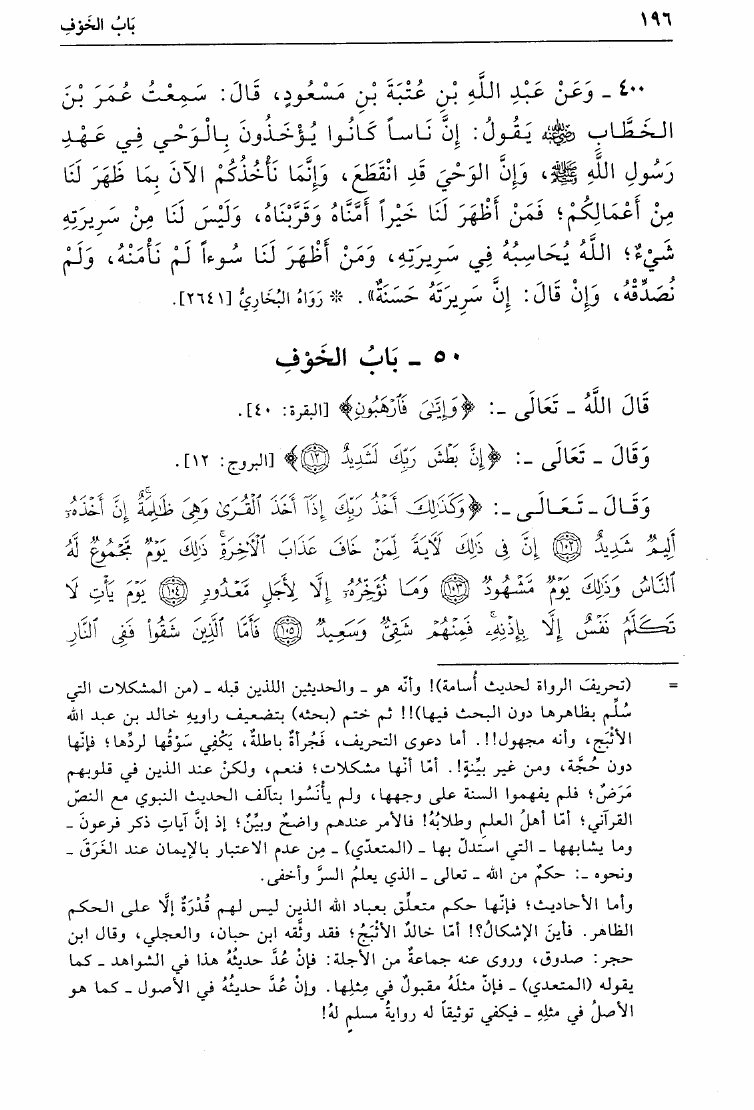 ١٩٦ بَابُ الخَوْفِ
٤٠٠ ـ وَعَنْ عَبْدِ اللَّهِ بْنِ عُتْبَةَ بْنِ مَسْعُودٍ، قَالَ: سَمِعْتُ عُمَرَ بْنَ
الخَطَّابِ ﷺ يَقُولُ: إِنَّ نَاساً كَانُوا يُؤْخَذُونَ بِالْوَحْيِ فِي عَهْدِ
رَسُولِ اللَّهِ ﷺ، وَإِنَّ الوَحْيَ قَدِ انْقَطَعَ، وَإِنَّمَا نَأْخُذُكُمْ الآنَ بِمَا ظَهَرَ لَنَا
مِنْ أَعْمَالِكُمْ؛ فَمَنْ أَظْهَرَ لَنَا خَيْراً أَمَّنَّاهُ وَقَرَّبْنَاهُ، وَلَيْسَ لَنَا مِنْ سَرِيرَتِهِ
شَيْءٌ؛ اللَّهُ يُحَاسِبُهُ فِي سَرِيرَتِهِ، وَمَنْ أَظْهَرَ لَنَا سُوءاً لَمْ نَأْمَنْهُ، وَلَمْ
نُصَدِّقْهُ، وَإِنْ قَالَ: إِنَّ سَرِيرَتَهُ حَسَنَةٌ». * رَوَاهُ البُخَارِيُّ [٢٦٤١].
٥٠ ـ بَابُ الخَوْفِ
قَالَ اللَّهُ ـ تَعَالَى ـ: ﴿وَإِيَّٰيَ فَٱرۡهَبُونِ﴾ [البقرة: ٤٠].
وَقَالَ ـ تَعَالَى ـ: ﴿إِنَّ بَطۡشَ رَبِّكَ لَشَدِيدٌ ١٢﴾ [البروج: ١٢].
وَقَالَ ـ تَعَالَى ـ: ﴿وَكَذَٰلِكَ أَخۡذُ رَبِّكَ إِذَآ أَخَذَ ٱلۡقُرَىٰ وَهِيَ ظَٰلِمَةٌۚ إِنَّ أَخۡذَهُۥٓ
أَلِيمٞ شَدِيدٌ ١٠٢ إِنَّ فِي ذَٰلِكَ لَأٓيَةٗ لِّمَنۡ خَافَ عَذَابَ ٱلۡأٓخِرَةِۚ ذَٰلِكَ يَوۡمٞ مَّجۡمُوعٞ لَّهُ
ٱلنَّاسُ وَذَٰلِكَ يَوۡمٞ مَّشۡهُودٞ ١٠٣ وَمَا نُؤَخِّرُهُۥٓ إِلَّا لِأَجَلٖ مَّعۡدُودٖ ١٠٤ يَوۡمَ يَأۡتِ لَا
تَكَلَّمُ نَفۡسٌ إِلَّا بِإِذۡنِهِۦۚ فَمِنۡهُمۡ شَقِيّٞ وَسَعِيدٞ ١٠٥ فَأَمَّا ٱلَّذِينَ شَقُواْ فَفِي ٱلنَّارِ
= (تحريفَ الرواة لحديث أسامة)! وأنّه هو ـ والحديثين اللذين قبله ـ (من المشكلات التي
سُلِّم بظاهرها دون البحث فيها)!! ثم ختم (بحثه) بتضعيف راويهِ خالد بن عبد الله
الأَثْبَج، وأنه مجهول!!. أما دعوى التحريف، فَجُرأةٌ باطلة، يَكْفِي سَوْقُها لردِّها؛ فإنّها
دون حُجَّة، ومن غير بيِّنةٍ!. أمّا أنّها مشكلات؛ فنعم، ولكنْ عند الذين في قلوبهم
مَرَضٌ؛ فلم يفهموا السنة على وجهها، ولم يأْنَسُوا بتآلف الحديث النبوي مع النصّ
القرآني؛ أمّا أهلُ العلم وطلابُهُ! فالأمر عندهم واضحٌ وبيِّنٌ؛ إذ إنَّ آياتِ ذكر فرعونَ ـ
وما يشابهها ـ التي استدلّ بها ـ (المتعدّي) ـ مِن عدم الاعتبار بالإيمان عند الغَرَقَ ـ
ونحوه ـ: حكمٌ من الله ـ تعالى ـ الذي يعلمُ السرَّ وأخفى.
وأما الأحاديث؛ فإنّها حكم متعلِّق بعباد الله الذين ليس لهم قُدْرَةٌ إلَّا على الحكم
الظاهر. فأينَ الإشكالُ؟! أمّا خالدٌ الأَثْبَجُ؛ فقد وثَّقه ابن حبان، والعجلي، وقال ابن
حجر: صدوق، وروى عنه جماعةٌ من الأجلة: فإنْ عُدَّ حديثُهُ هذا في الشواهد ـ كما
يقوله (المتعدي) ـ فإنّ مثلَهُ مقبولٌ في مِثلِها. وإنْ عُدَّ حديثُهُ في الأصول ـ كما هو
الأصلُ في مثلِهِ ـ فيكفي توثيقاً له روايةُ مسلمٍ لهُ!